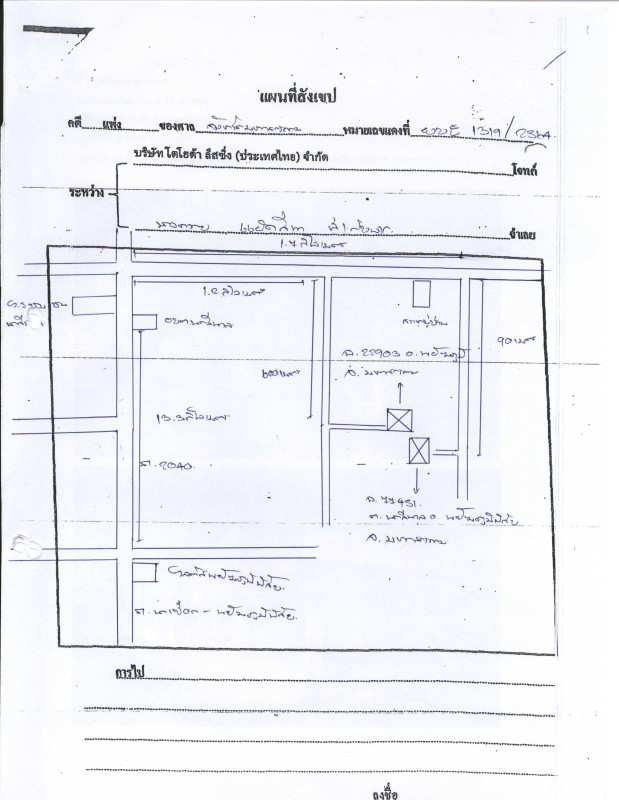 แผนที่สังเขป
คดี......แพ่ง..........ของศาล จังหวัดมหาสารคาม หมายเลขแดงที่ ผบE 1319/2564
บริษัท โตโยต้า ลีสซิ่ง (ประเทศไทย) จำกัด โจทก์
ระหว่าง
ที่ 1 จำเลย
1.7 กิโลเมตร
1.2 กิโลเมตร
โรงเรียน
อบต.นาสีนวล
600 เมตร
90 เมตร
ฉ. 22903 อ. พยัคฆภูมิ
จ. มหาสารคาม
13.3 กิโลเมตร
ถ. 2040
ฉ. 77451
ต. นาสีนวล อ. พยัคฆภูมิพิสัย
จ. มหาสารคาม
พยัคฆภูมิพิสัย
ถ. นาเชือก - พยัคฆภูมิพิสัย
การไป
ลงชื่อ